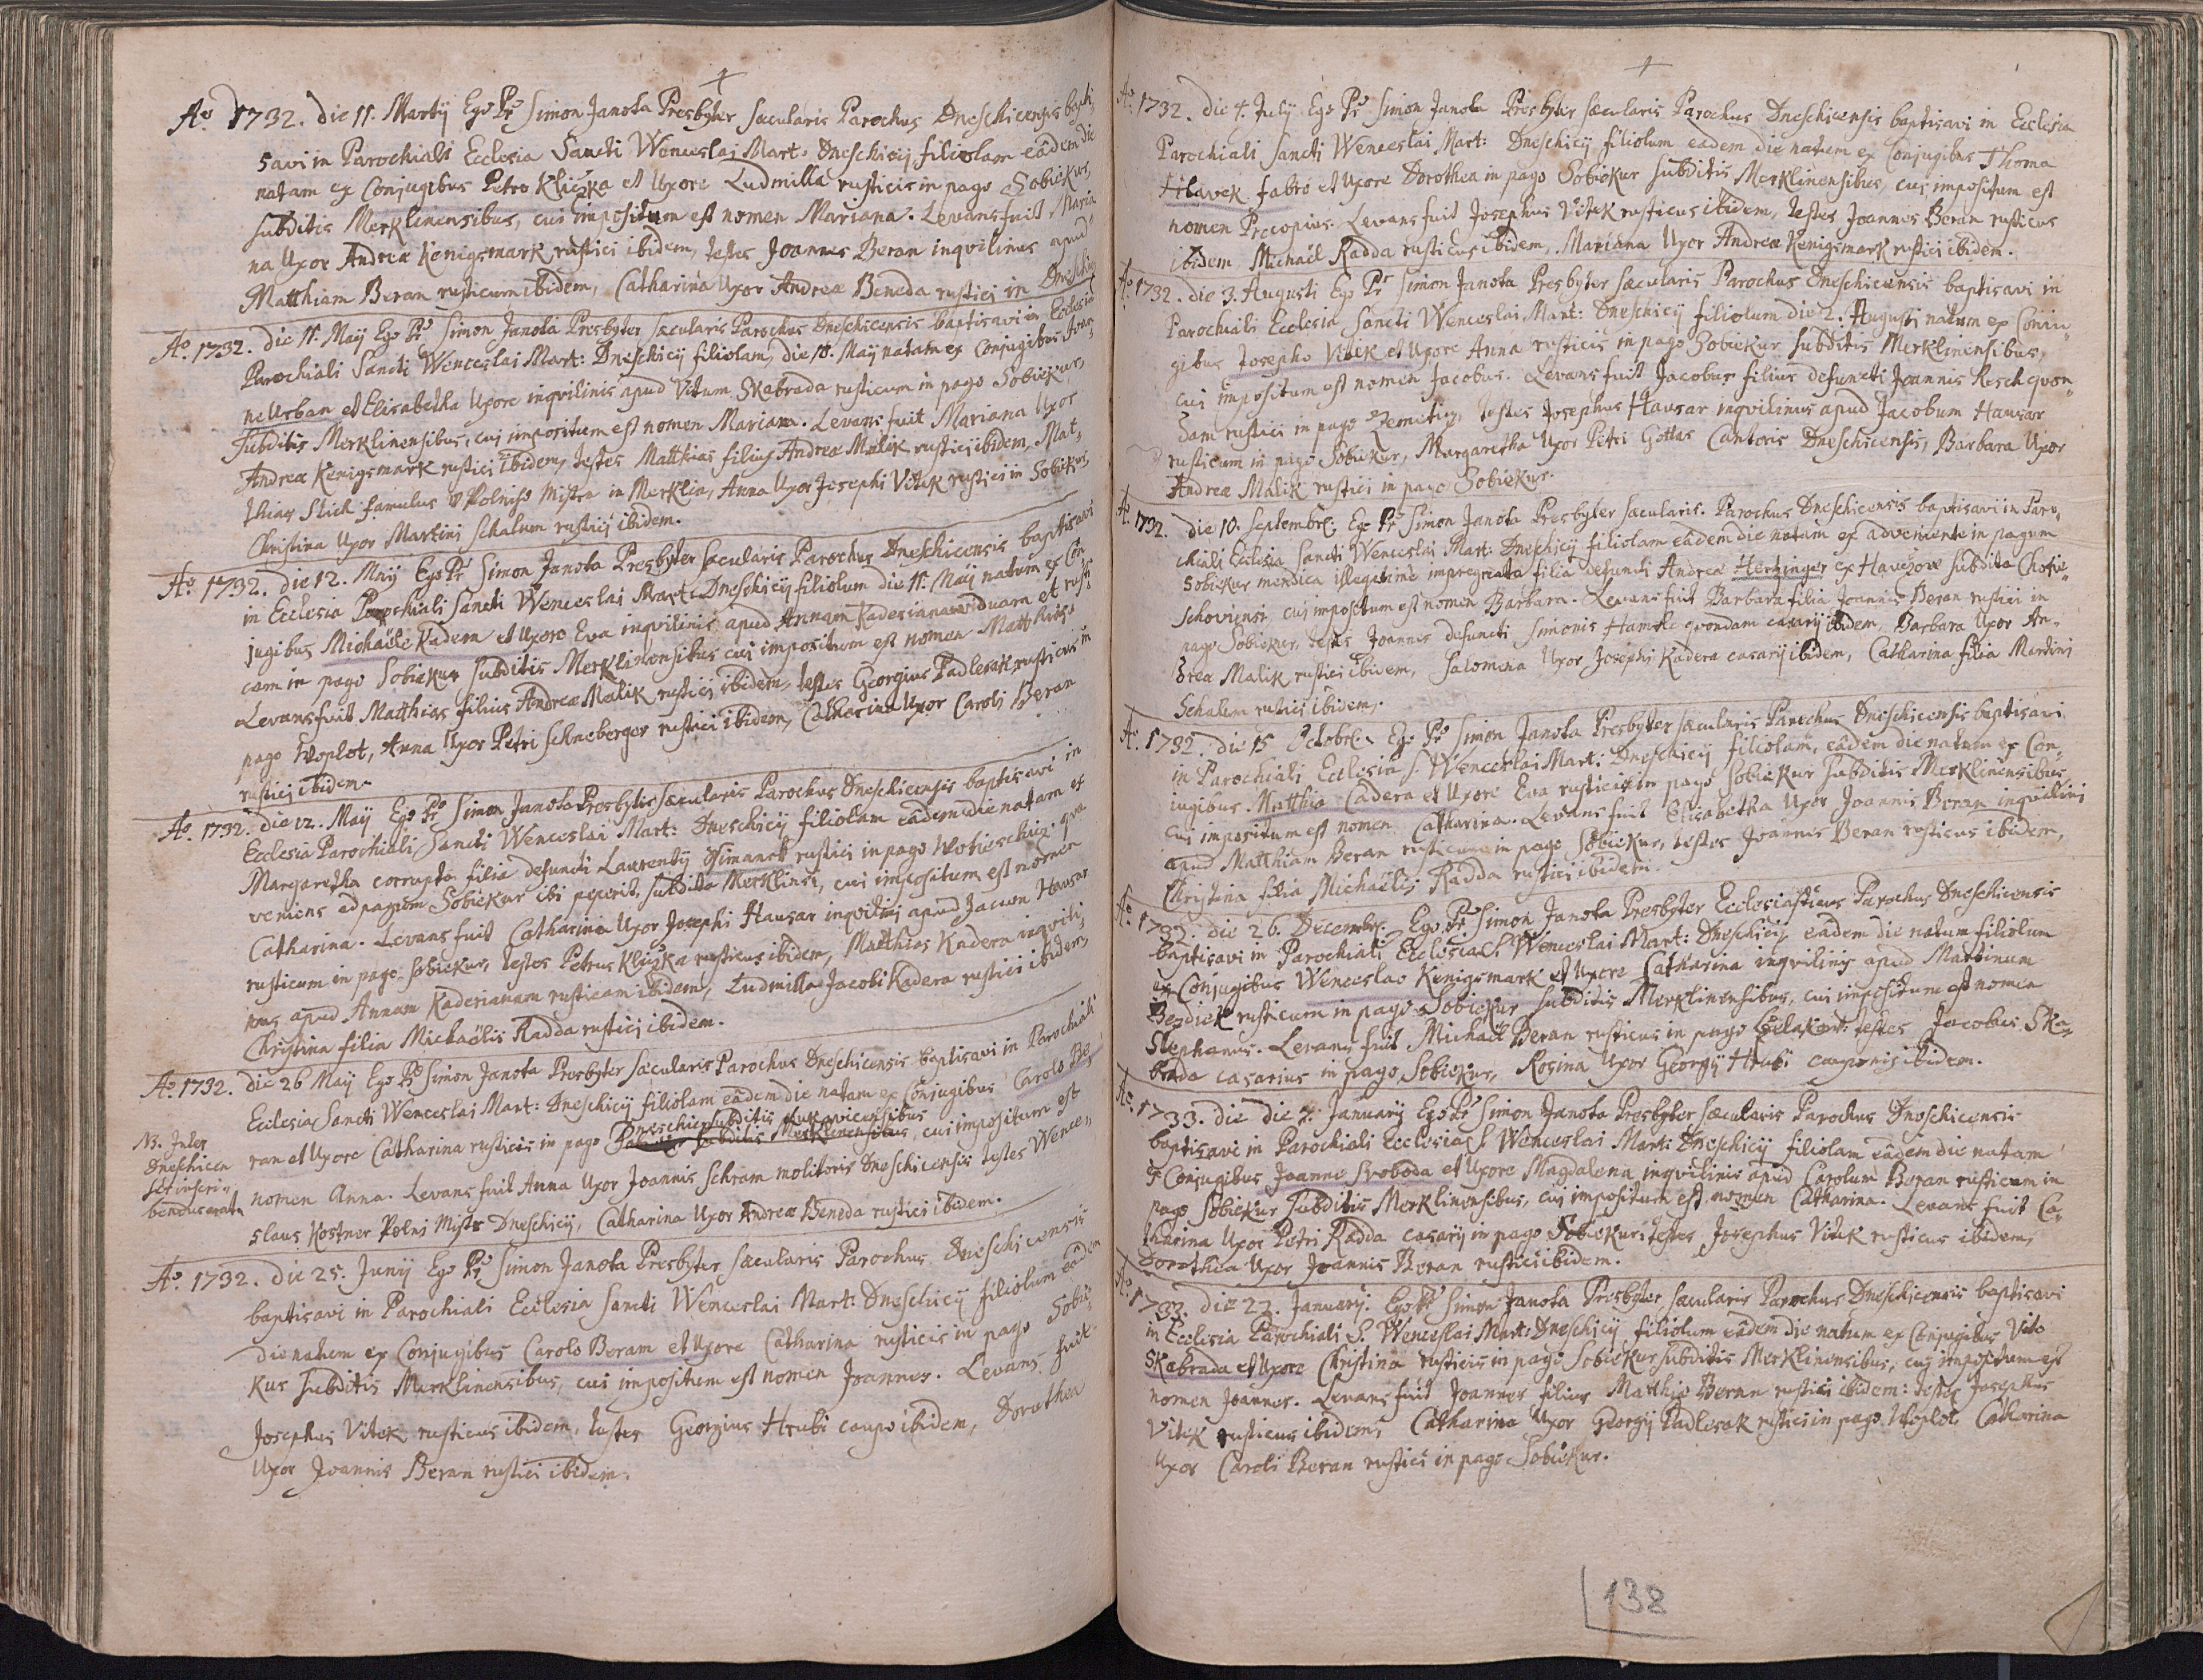 Ao 1732. die 11. Martÿ Ego Pr Simon Janota Presbyter sæcularis Parochus Dneschicensis bapti,
savi in Parochiali Ecclesia Sancti Wenceslai Mart: Dneschicÿ filiolam eâdem die
natam ex Conjugibus Petro Kliczka et Uxore Ludmilla rusticis in pago Sobiekur,
subditis Merklinensibus, cui impositum est nomen Mariana. Levans fuit Maria
na Uxor Andreæ Kenigsmark rustici ibidem, testes Joannes Beran inqvilinus apud
Matthiam Beran rusticum ibidem, Catharina Uxor Andreæ Beneda rustici in Dneschicz
Ao. 1732. die 11. Maÿ Ego Pr Simon Janota Presbyter sæcularis Parochus Dneschicensis baptisavi in Ecclesia
Parochiali Sancti Wenceslai Mart: Dneschicÿ filiolam, die 10. Maÿ natam ex Conjugibus Joan
ne Urban et Elisabetha Uxore inqvilinis apud Vitum Skabrada rusticum in pago Sobiekur,
subditis Merklinensibus, cui impositum est nomen Mariana. Levans fuit Mariana Uxor
Andreæ Kenigsmark rustici ibidem, testes Matthias filius Andreæ Malik rustici ibidem, Mat,
thias Stich famulus Polniho Mistra in Merklin, Anna Uxor Josephi Vitek rustici in Sobiekur,
Christina Uxor Martini Schalum rustici ibidem.
Ao. 1732. die 12. Maÿ Ego Pr Simon Janota Presbyter sæcularis Parochus Dneschicensis baptisavi
in Ecclesia Parochiali Sancti Wenceslai Mart: Dneschicÿ filiolum die 11. Maÿ natum ex Con
jugibus Michaële Kadera et Uxore Eva inqvilinis apud Annam Kaderianam viduam et rusti
cam in pago Sobiekur subditis Merklinensibus cui impositum est nomen Matthias.
Levans fuit Matthias filius Andreæ Malik rustici ibidem, testes Georgius Padlesak rusticus in
pago Woplot, Anna Uxor Petri Schneberger rustici ibidem, Catharina Uxor Caroli Beran
rustici ibidem.
Ao. 1732. die 12. Maÿ Ego Pr Simon Janota Presbyter sæcularis Parochus Dneschicensis baptisavi in
Ecclesia Parochiali Sancti Wenceslai Mart: Dneschicÿ filiolam eâdem die natam ex
Margaretha corrupta filia defuncti Laurentÿ Ssimanek rustici in pago quæ
veniens ad pagum Sobiekur ibi peperit, subdita Merklinsi, cui impositum est nomen
Catharina. Levans fuit Catharina Uxor Josephi Hausar inqvilini apud Jacum Hausar
rusticum in pago Sobiekur, testes Petrus Kliczka rusticus ibidem, Matthias Kadera inqvili,
nus apud Annam Kaderianam rusticam ibidem, Ludmilla Jacobi Kadera rustici ibidem,
Christina filia Michaëlis Radda rustici ibidem.
Ao. 1732. die 26 Maÿ Ego Pr Simon Janota Presbyter sæcularis Parochus Dneschicensis baptisavi in Parochiali
Ecclesia Sancti Wenceslai Mart: Dneschicÿ filiolam eâdem die natam ex Conjugibus Carolo Be,
Dneschicz subditis Lukavicensibus
ran et Uxore Catharina rusticis in pago subditis Merklinensibus, cui impositum est
NB. Inter
Dneschicen
ses inscri,,
benda erat
nomen Anna. Levans fuit Anna Uxor Joannis Schram molitoris Dneschicensis testes Wence,,
slaus Kostner Polni Mistr Dneschicÿ, Catharina Uxor Andreæ Beneda rustici ibidem.
Ao. 1732. die 25. Junÿ Ego Pr Simon Janota Presbyter sæcularis Parochus Dneschicensis
baptisavi in Parochiali Ecclesia Sancti Wenceslai Mart: Dneschicÿ filiolum eâdem
die natum ex Conjugibus Carolo Beram et Uxore Catharina rusticis in pago Sobie,
kur subditis Merklinensibus, cui impositum est nomen Joannes. Levans fuit
Josephus Vitek rusticus ibidem, testes Georgius Hrubi caupo ibidem, Dorothea
Uxor Joannis Beran rustici ibidem.
Ao. 1732. die 4. Julÿ Ego Pr Simon Janota Presbyter sæcularis Parochus Dneschicensis baptisavi in Ecclesia
Parochiali Sancti Wenceslai Mart: Dneschicÿ filiolum eadem die natum ex Conjugibus Thoma
Hlavek fabro et Uxore Dorothea in pago Sobiekur subditis Merklinensibus, cui impositum est
nomen Procopius. Levans fuit Josephus Vitek rusticus ibidem, testes Joannes Beran rusticus
ibidem Michaël Radda rusticus ibidem, Mariana Uxor Andreæ Kenigsmark rustici ibidem.
Ao. 1732. die 3. Augusti Ego Pr Simon Janota Presbyter sæcularis Parochus Dneschicensis baptisavi in
Parochiali Ecclesia Sancti Wenceslai Mart: Dneschicÿ filiolum die 2. Augusti natum ex Conju,,
gibus Josepho Vitek et Uxore Anna rusticis in pago Sobiekur subditis Merklinensibus,
cui impositum est nomen Jacobus. Levans fuit Jacobus filius defuncti Joannis Resch qvon,,
dam rustici in pago Zemetitz, testes Josephus Hausar inqvilinus apud Jacobum Hausar
rusticum in pago Sobiekur, Margaretha Uxor Petri Gottas Cantoris Dneschicensis, Barbara Uxor
Andreæ Malik rustici in pago Sobiekur.
Ao. 1732. die 10. Septembr: Ego Pr Simon Janota Presbyter sæcularis Parochus Dneschicensis baptisavi in Paro,
chiali Ecclesia Sancti Wenceslai Mart: Dneschicÿ filiolam eâdem die natam ex adveniente in pagum
Sobiekur mendica illegitime impregnata filia defuncti Andreæ Hertzinger ex subdita Chotie,,
schoviensi cui impositum est nomen Barbara. Levans fuit Barbara filia Joannis Beran rustici in
pago Sobiekur, testes Joannes defuncti Simonis qvondam casarÿ ibidem, Barbara Uxor An,
dreæ Malik rustici ibidem, Salomena Uxor Josephi Kadera casarÿ ibidem, Catharina filia Martini
Schalum rustici ibidem.
Ao. 1732. die 15 Octobr: Ego Pr Simon Janota Presbyter sæcularis Parochus Dneschicensis baptisavi
in Parochiali Ecclesia S. Wenceslai Mart: Dneschicÿ filiolam, eâdem die natam ex Con,
jugibus Matthia Cadera et Uxore Eva rusticis in pago Sobiekur subditis Merklinensibus,
cui impositum est nomen Catharina. Levans fuit Elisabetha Uxor Joannis Beran inqvilini
apud Matthiam Beran rusticum in pago Sobiekur, testes Joannes Beran rusticus ibidem,
Christina filia Michaëlis Radda rustici ibidem.
Ao. 1732. die 26. Decembr: Ego Pr Simon Janota Presbyter Ecclesiasticus Parochus Dneschicensis
baptisavi in Parochiali Ecclesia S. Wenceslai Mart: Dneschicÿ eâdem die natum filiolum
ex Conjugibus Wenceslao Kenigsmark et Uxore Catharina inqvilinis apud Martinum
Bezdiek rusticum in pago Sobiekur subditis Merklinensibus, cui impositum est nomen
Stephanus. Levans fuit Michaël Beran rusticus in pago testes Jacobus Ska,
brada casarius in pago Sobiekur, Rosina Uxor Georgÿ Hrubi cauponis ibidem.
Ao. 1733. die die 7. Januarÿ Ego Pr Simon Janota Presbyter sæcularis Parochus Dneschicensis
baptisavi in Parochiali Ecclesia S Wenceslai Mart: Dneschicÿ filiolam eâdem die natam
ex Conjugibus Joanne Svoboda et Uxore Magdalena inqvilinis apud Carolum Beran rusticum in
pago Sobiekur subditis Merklinensibus, cui impositum est nomen Catharina. Levans fuit Ca,
tharina Uxor Petri Radda casarÿ in pago Sobiekur: testes Josephus Vitek rusticus ibidem,
Dorothea Uxor Joannis Beran rustici ibidem.
Ao. 1733. die 22. Januarÿ. Ego Pr Simon Janota Presbyter sæcularis Parochus Dneschicensis baptisavi
in Ecclesia Parochiali S. Wenceslai Mart: Dneschicÿ filiolum eâdem die natum ex Conjugibus Vito
Skabrada et Uxore Christina rusticis in pago Sobiekur subditis Merklinensibus, cui impositum est
nomen Joannes. Levans fuit Joannes filius Matthiæ Beran rustici ibidem: testes Josephus
Vitek rusticus ibidem, Catharina Uxor Georgÿ Padlesak rustici in pago Woplot, Catharina
Uxor Caroli Beran rustici in pago Sobiekur.
138